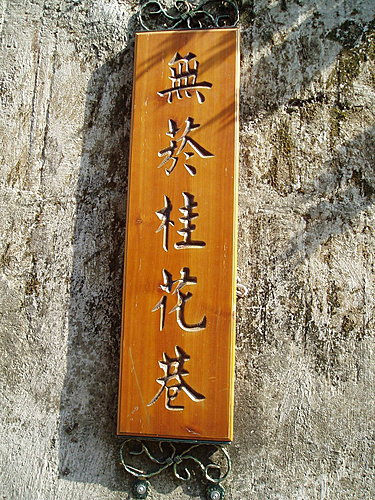 無菸桂花巷